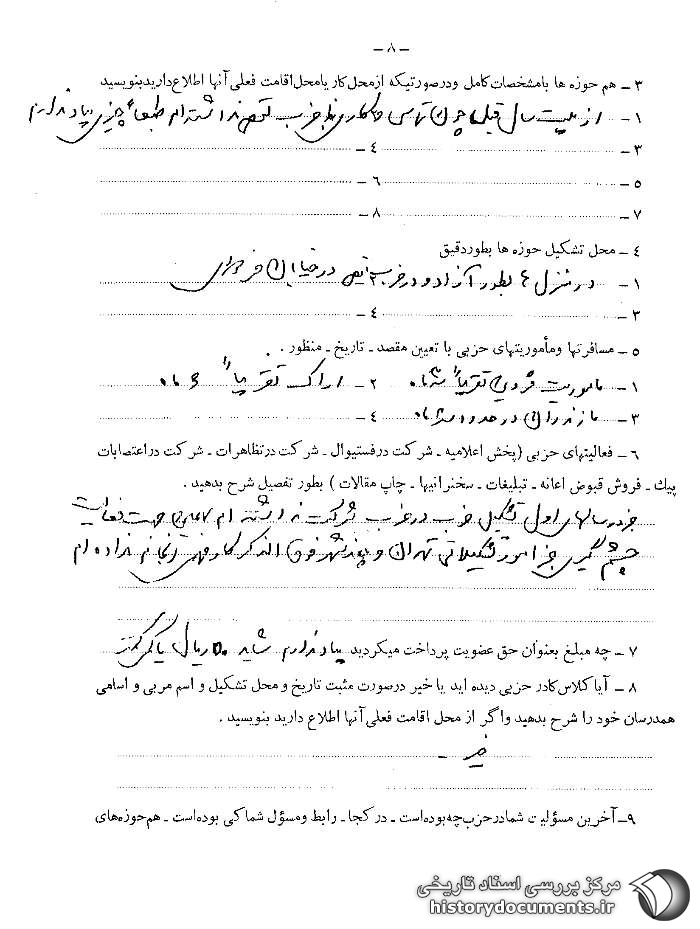 -۸-
۳ - هم حوزه ها بامشخصات کامل ودرصورتیکه ازمحل کار یامحل اقامت فعلی آنها اطلاع دارید بنویسید
۱ - از بیست سال قبل چون تماسی با حزب نداشته ام طبعاً چیزی بیاد ندارم
۳ - ۴ -
۵ - ۶ -
۷ - ۸ -
۴ - محل تشکیل حوزه ها بطور دقیق
۱ - در منزل ها بطور آزاد و در حزب در خیابان فردوسی
۳ - ۴ -
۵ - مسافرتها ومأموریتهای حزبی با تعیین مقصد - تاریخ - منظور .
۱ - ماموریت قزوین تقریباً ۳ ماه ۲ - اراک تقریباً ۶ ماه
۳ - مازندران در حدود ماه ۴ -
۶ - فعالیتهای حزبی (پخش اعلامیه - شرکت درفستیوال - شرکت درتظاهرات - شرکت دراعتصابات
پیک - فروش قبوض اعانه - تبلیغات - سخنرانیها - چاپ مقالات ) بطور تفصیل شرح بدهید .
جز در سالهای اول تشکیل حزب در حزب شرکت نداشته ام فعالیت
چشم گیری جز امور تشکیلاتی تهران و چند شهر فوق الذکر کار مهمی انجام نداده ام
۷ - چه مبلغ بعنوان حق عضویت پرداخت میکردید بیاد ندارم شاید ۵۰ ریال یا کمتر
۸ - آیا کلاس کادر حزبی دیده اید یا خیر درصورت مثبت تاریخ و محل تشکیل و اسم مربی و اسامی
همدرسان خود را شرح بدهید واگر از محل اقامت فعلی آنها اطلاع دارید بنویسید .
خیر
۹- آخرین مسؤلیت شما درحزب چه بوده است - در کجا - رابط ومسؤل شما کی بوده است - هم حوزه های
مرکز بررسی اسناد تاریخی
historydocuments.ir